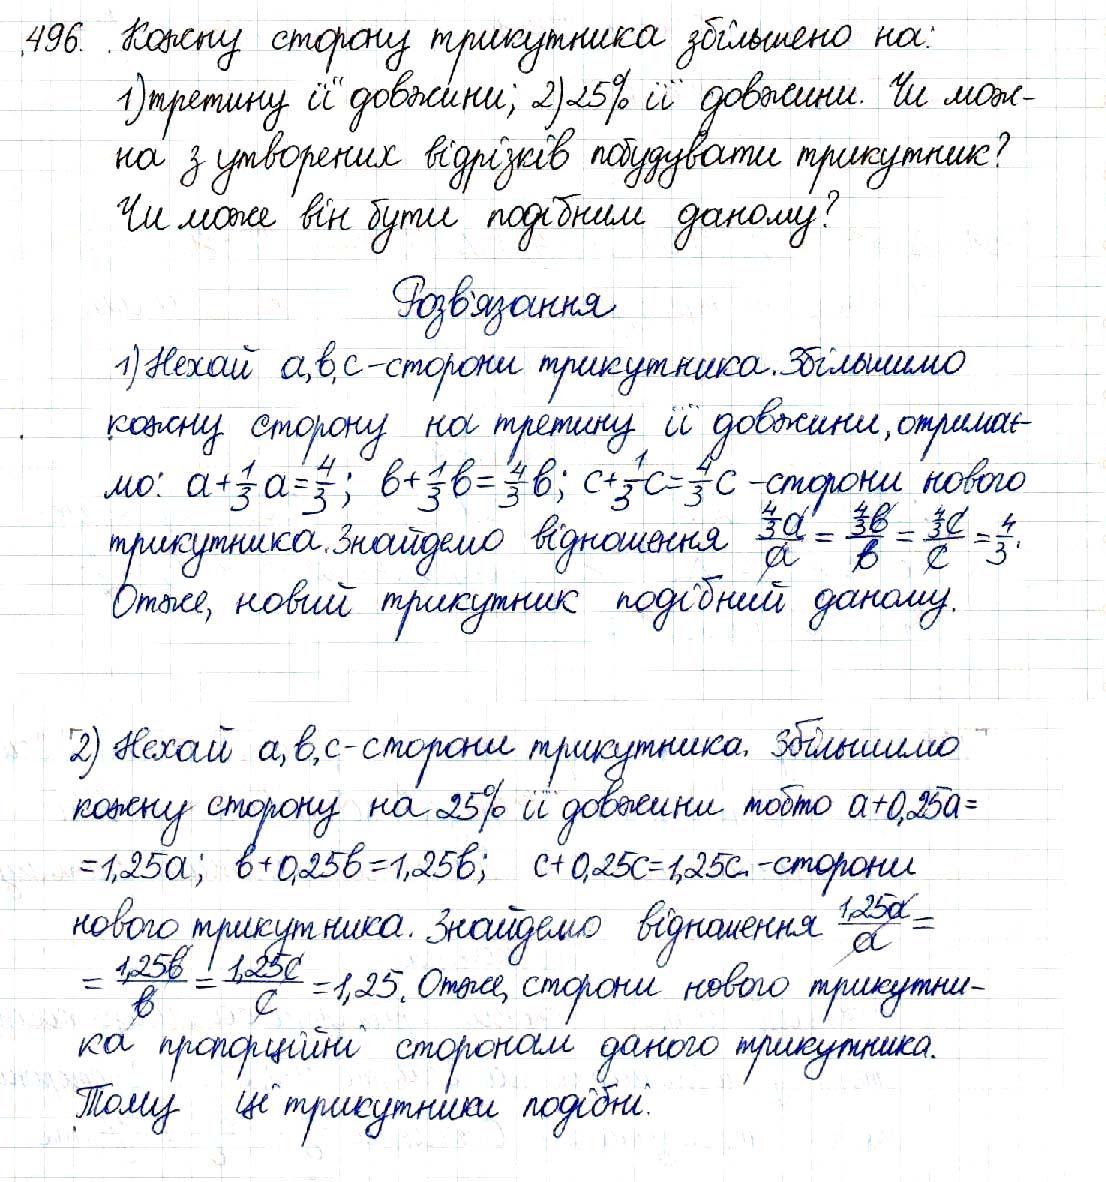 496. Кожну сторону трикутника збільшено на:
1) третину її довжини; 2) 25% її довжини. Чи мож-
на з утворених відрізків побудувати трикутник?
Чи може він бути подібним даному?
Розв'язання
1) Нехай а, в, с - сторони трикутника. Збільшимо
кожну сторону на третину її довжини, отримає-
мо: a + 1/3 a = 4/3; в + 1/3 в = 4/3 в; c + 1/3 c = 4/3 c - сторони нового
трикутника. Знайдемо відношення (4/3 a)/a = (4/3 в)/в = (4/3 c)/c = 4/3.
Отже, новий трикутник подібний даному.
2) Нехай а, в, с - сторони трикутника. Збільшимо
кожну сторону на 25% її довжини тобто a + 0,25a =
= 1,25a; в + 0,25в = 1,25в; c + 0,25c = 1,25c. - сторони
нового трикутника. Знайдемо відношення 1,25a/a =
= 1,25в/в = 1,25c/c = 1,25. Отже, сторони нового трикутни-
ка пропорційні сторонам даного трикутника.
Тому ці трикутники подібні.